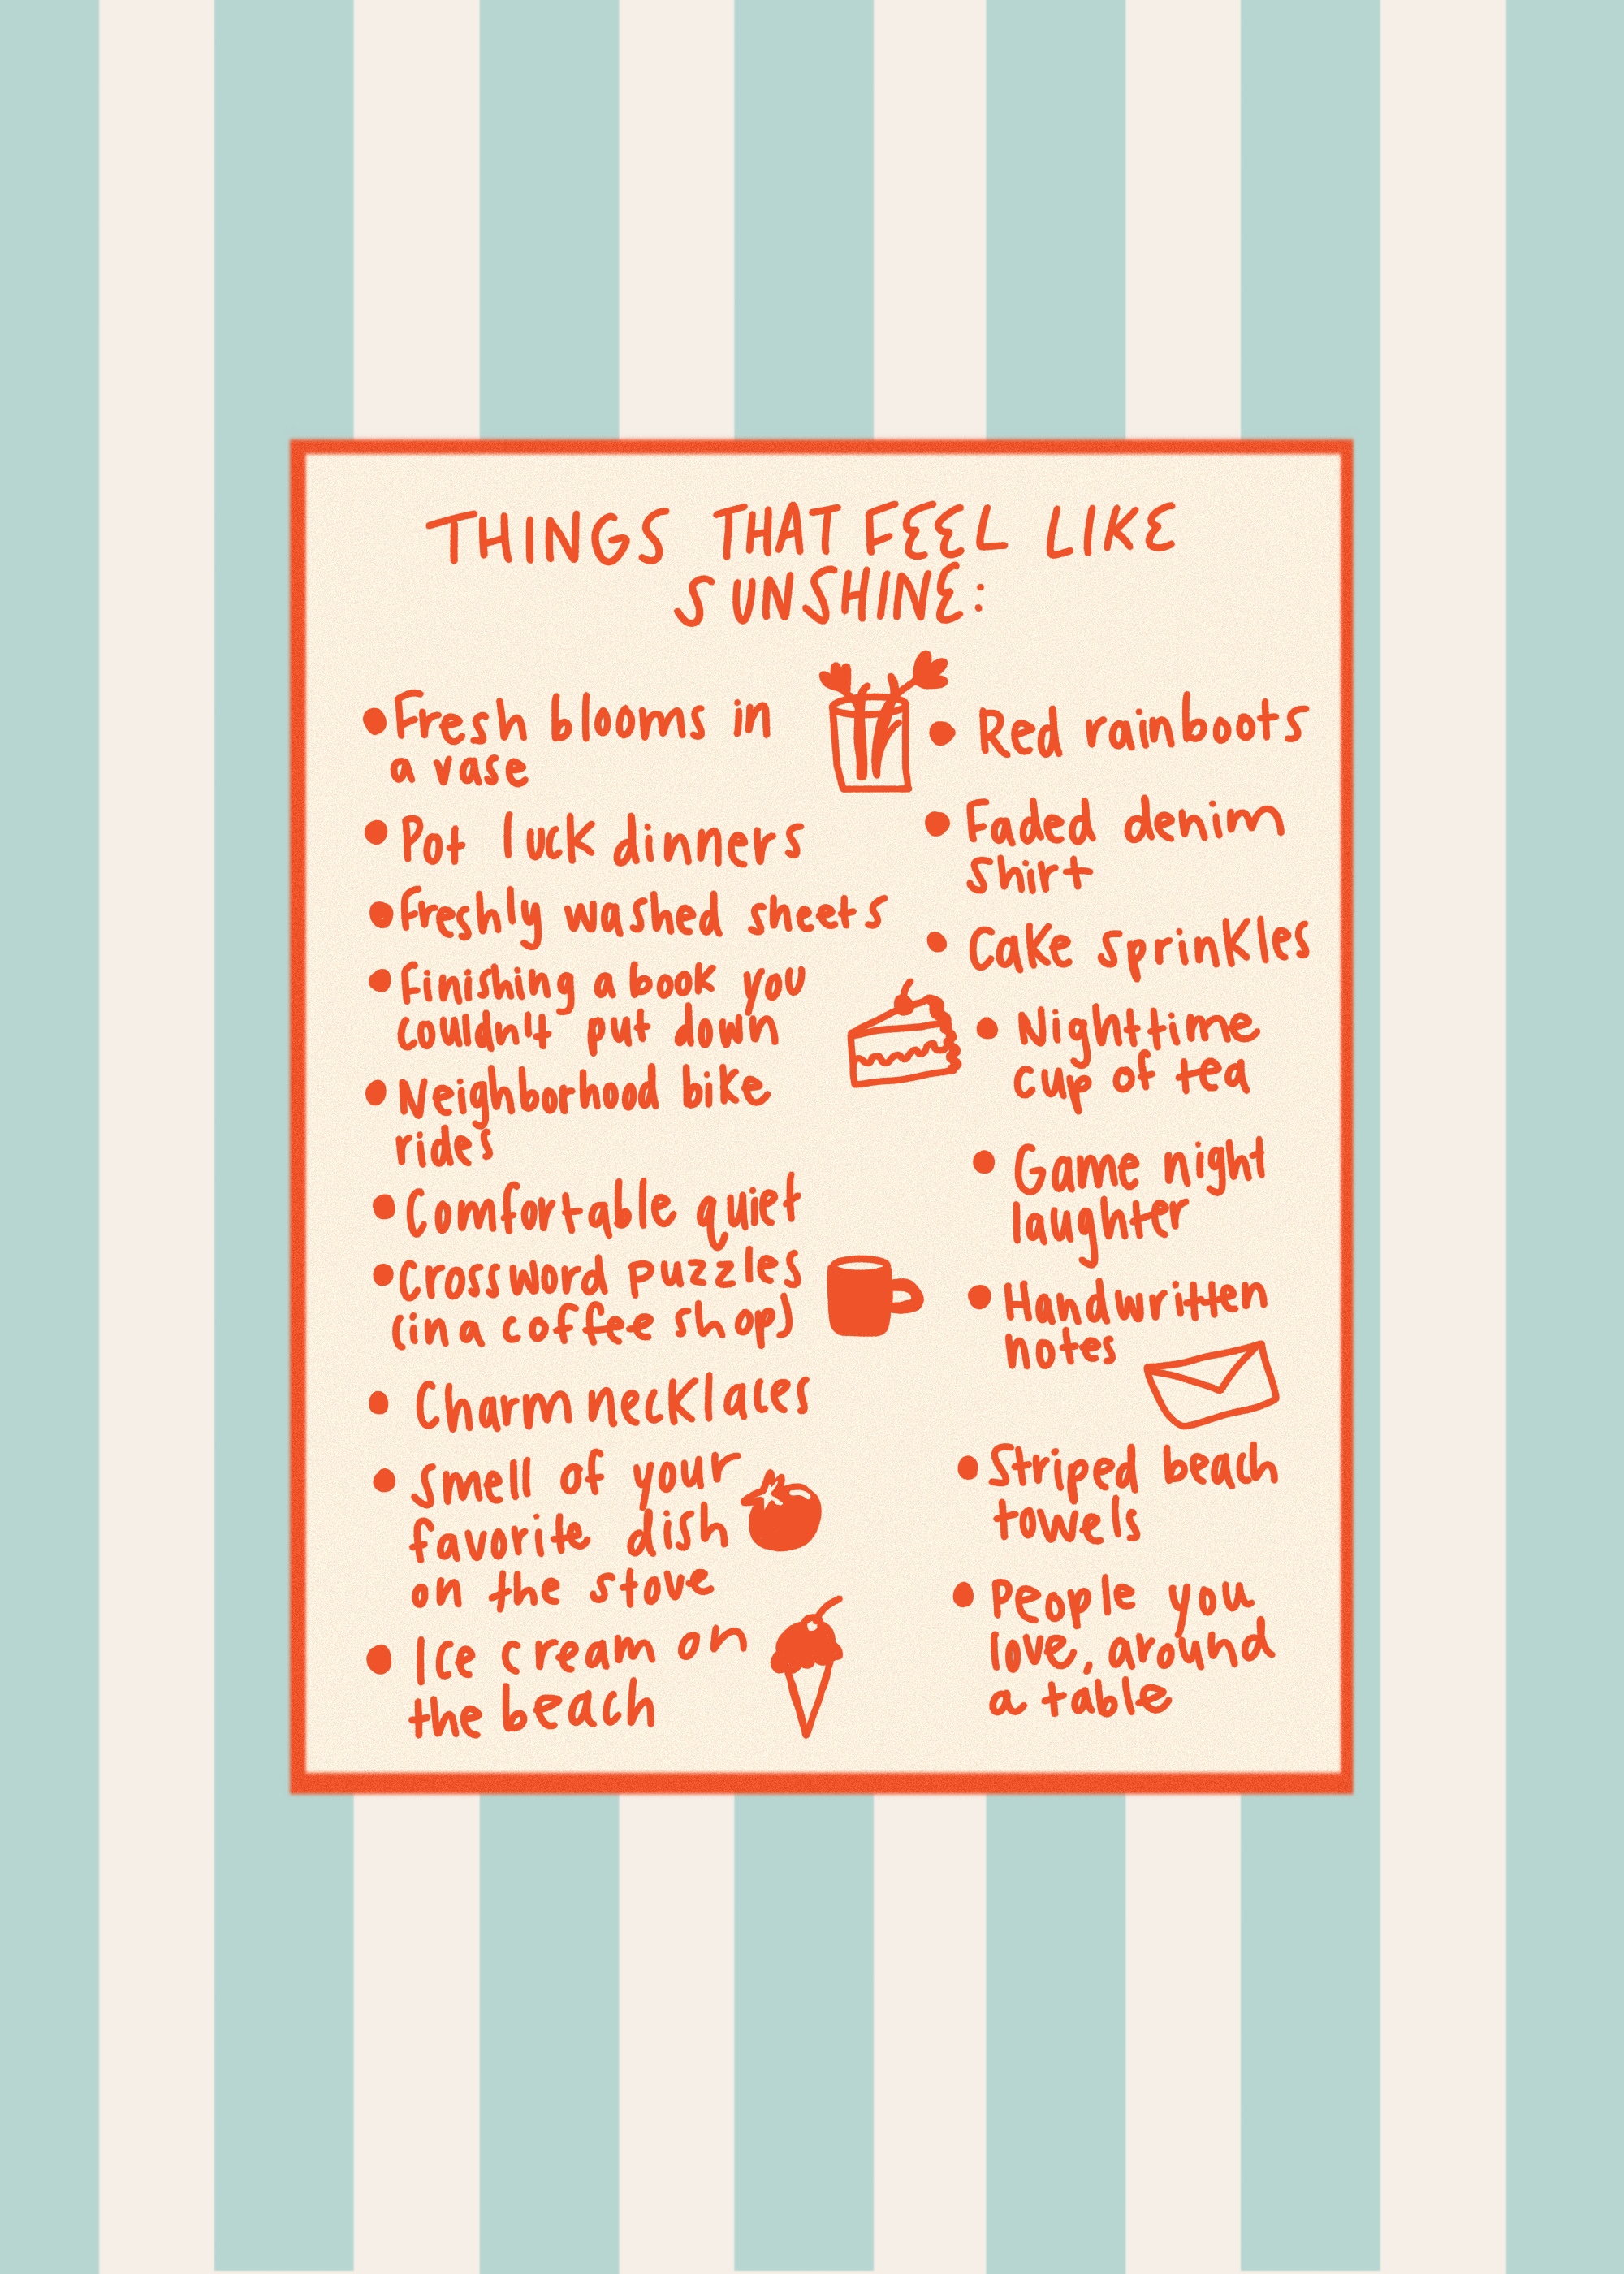 THINGS THAT FEEL LIKE
SUNSHINE:
• Fresh blooms in
a vase
• Pot luck dinners
• Freshly washed sheets
• Finishing a book you
couldn't put down
• Neighborhood bike
rides
• Comfortable quiet
• Crossword puzzles
(in a coffee shop)
• Charm necklaces
• Smell of your
favorite dish
on the stove
• Ice cream on
the beach
• Red rainboots
• Faded denim
shirt
• Cake sprinkles
• Nighttime
cup of tea
• Game night
laughter
• Handwritten
notes
• Striped beach
towels
• People you
love, around
a table